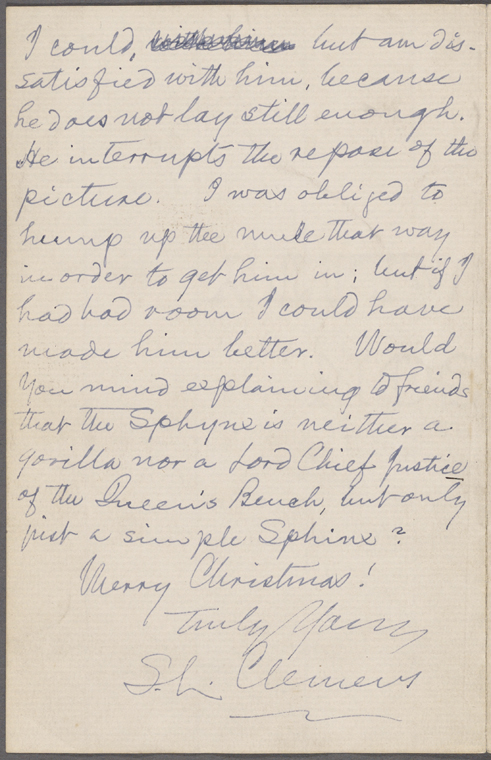 I could, but am dis-
satisfied with him, because
he does not lay still enough.
He interrupts the repose of the
picture. I was obliged to
hump up the mule that way
in order to get him in; but if I
had had room I could have
made him better. Would
you mind explaining to friends
that the Sphynx is neither a
gorilla nor a Lord Chief Justice
of the Queen's Bench, but only
just a simple Sphinx?
Merry Christmas!
Truly Yours
S. L. Clemens